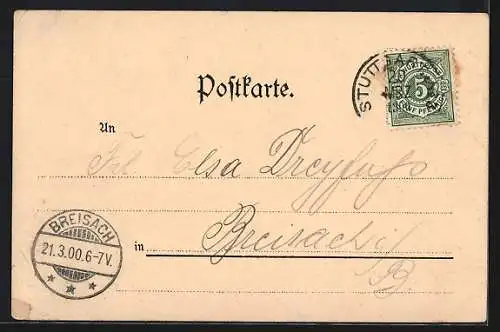 Postkarte.
STUTTGA
5
An
Frl. Elsa Dreyfuss
in Breisach i/
B.
BREISACH
21.3.00.6-7V.